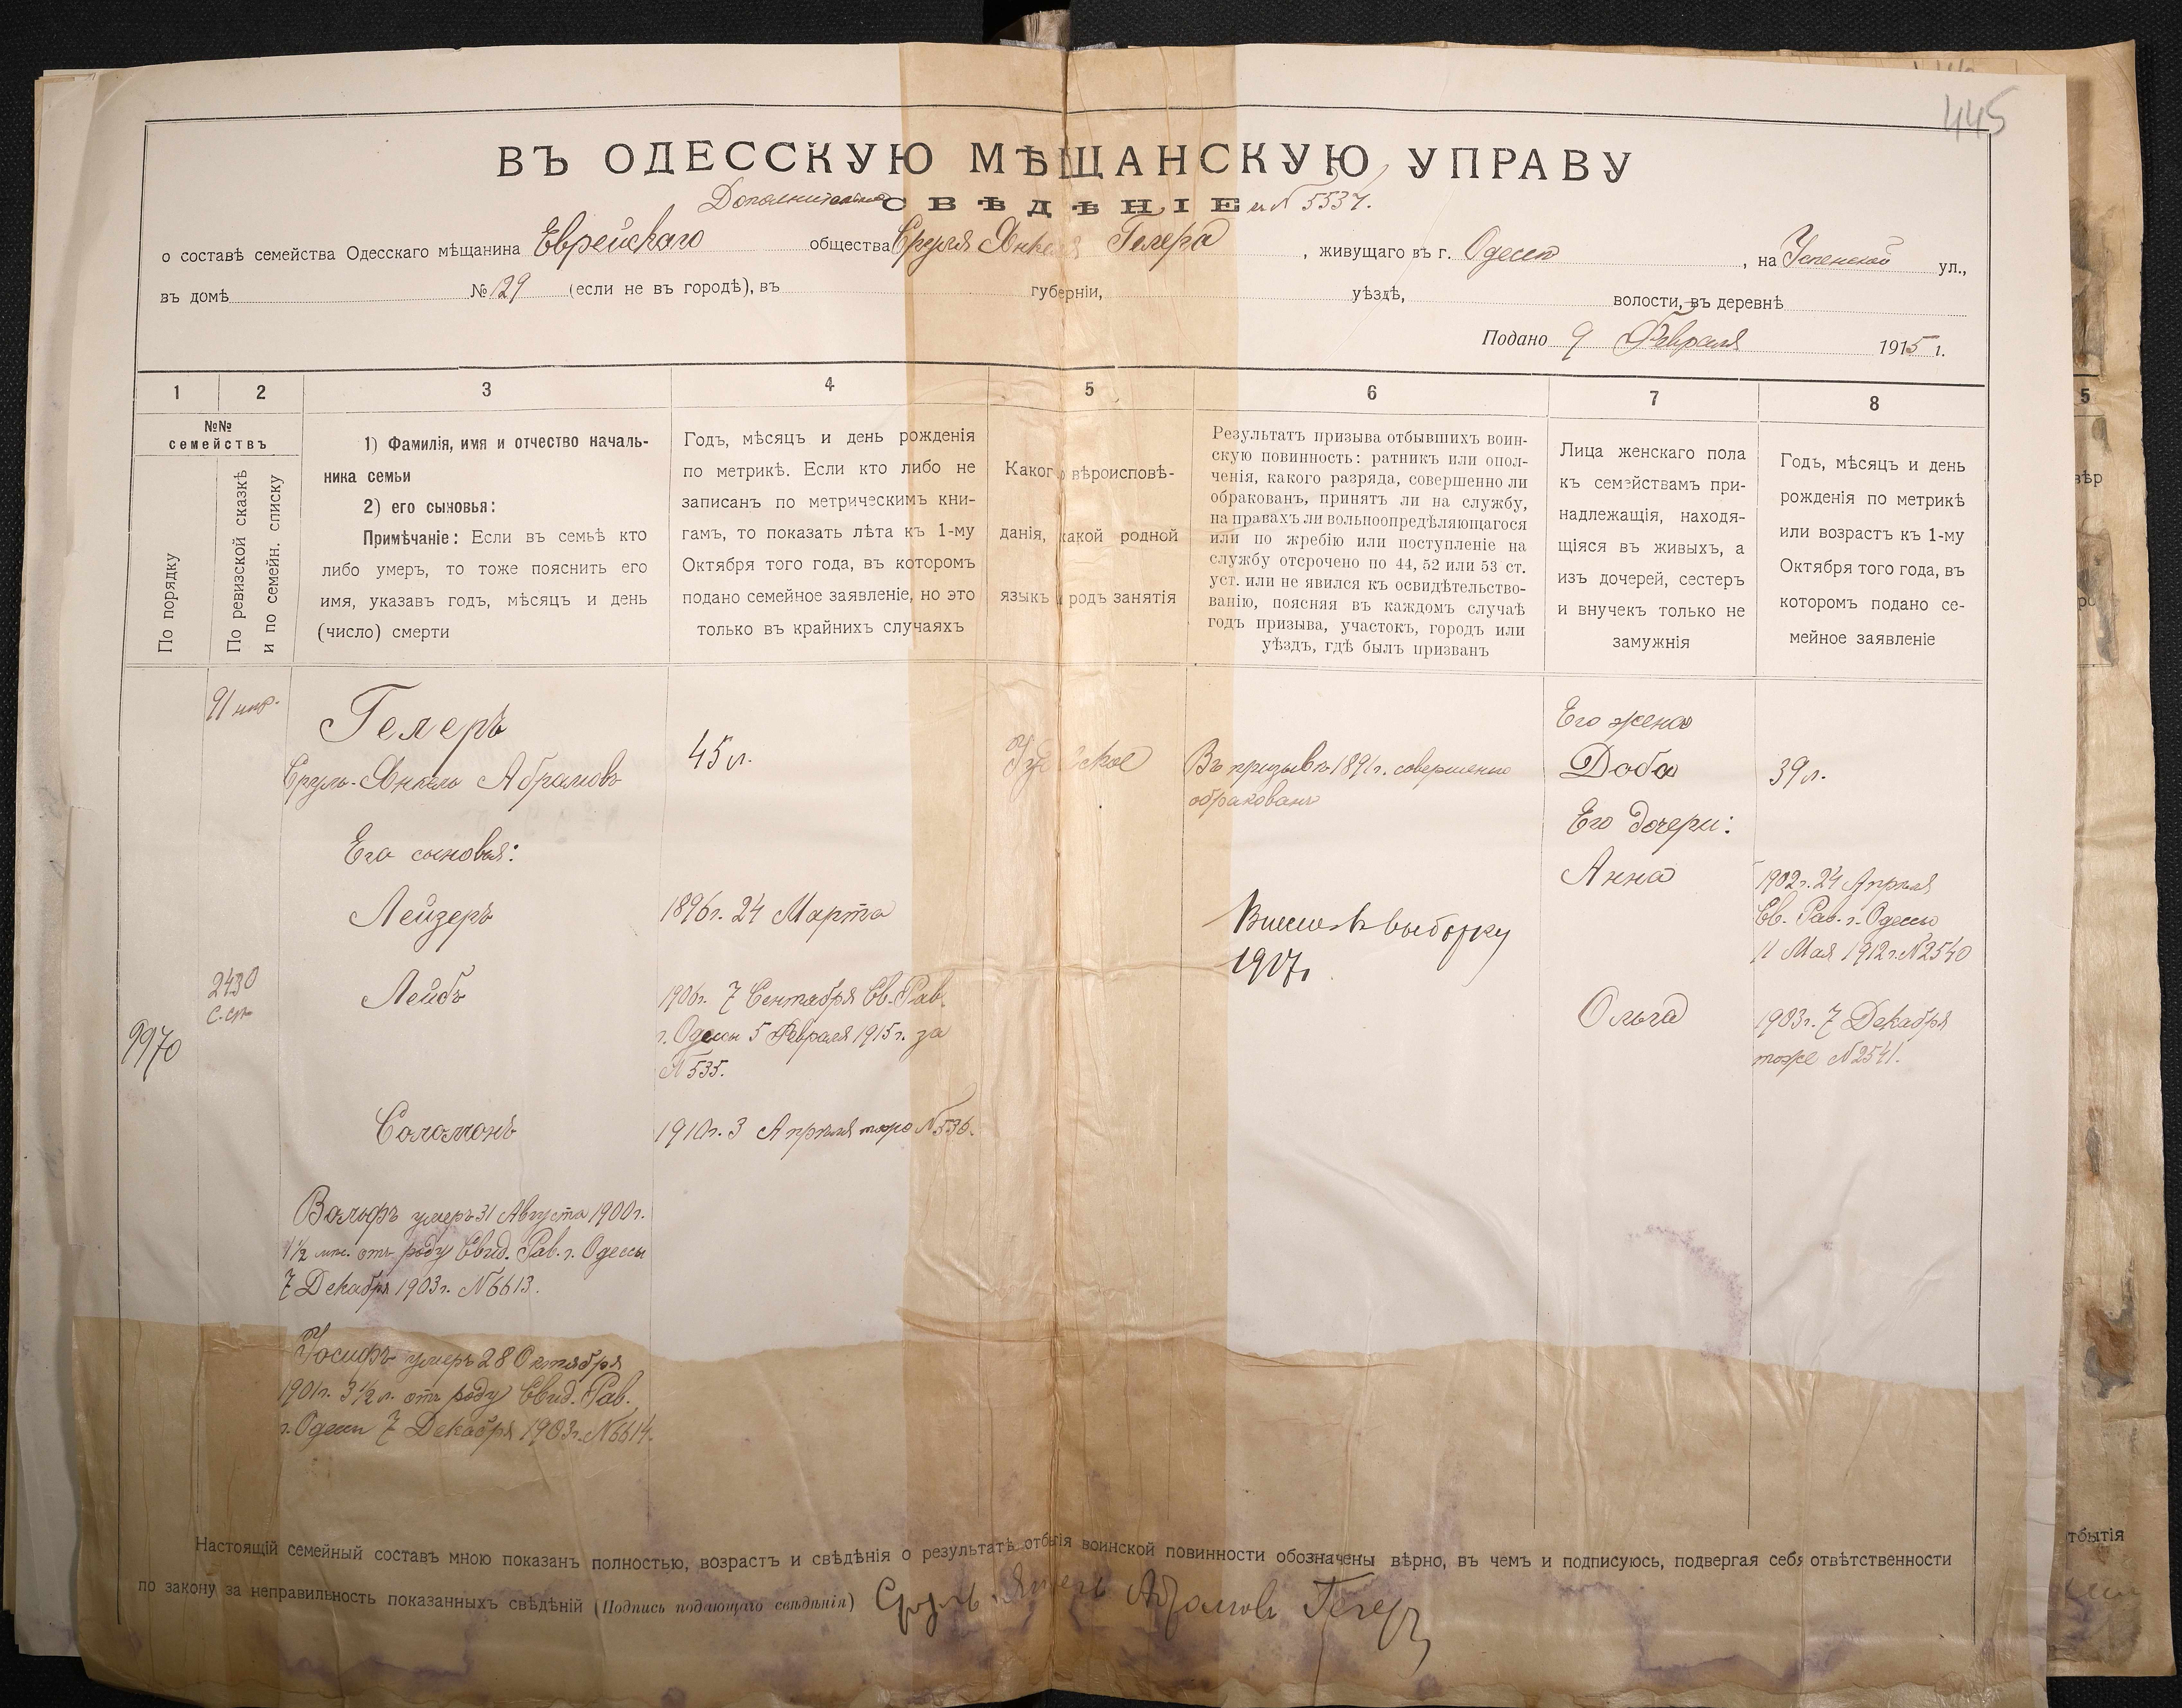 445
ВЪ ОДЕССКУЮ МѢЩАНСКУЮ УПРАВУ
Дополнительно СВѢДѢНІЕ къ № 5537.
о составѣ семейства Одесскаго мѣщанина Еврейскаго общества Сруля Янкеля Гелера, живущаго въ г. Одессѣ, на Успенской ул.,
въ домѣ № 129 (если не въ городѣ), въ губерніи, уѣздѣ, волости, въ деревнѣ
Подано 9 Февраля 1915 г.
1 2 3 4 5 6 7 8
№№ семействъ
По порядку
По ревизской сказкѣ
и по семейн. списку
1) Фамилія, имя и отчество началь-
ника семьи
2) его сыновья:
Примѣчаніе: Если въ семьѣ кто
либо умеръ, то тоже пояснить его
имя, указавъ годъ, мѣсяцъ и день
(число) смерти
Годъ, мѣсяцъ и день рожденія
по метрикѣ. Если кто либо не
записанъ по метрическимъ кни-
гамъ, то показать лѣта къ 1-му
Октября того года, въ которомъ
подано семейное заявленіе, но это
только въ крайнихъ случаяхъ
Какого вѣроисповѣ-
данія, какой родной
языкъ и родъ занятія
Результатъ призыва отбывшихъ воин-
скую повинность: ратникъ или опол-
ченія, какого разряда, совершенно ли
обракованъ, принятъ ли на службу,
на правахъ ли вольноопредѣляющагося
или по жребію или поступленіе на
службу отсрочено по 44, 52 или 53 ст.
уст. или не явился къ освидѣтельство-
ванію, поясняя въ каждомъ случаѣ
годъ призыва, участокъ, городъ или
уѣздъ, гдѣ былъ призванъ
Лица женскаго пола
къ семействамъ при-
надлежащія, находя-
щіяся въ живыхъ, а
изъ дочерей, сестеръ
и внучекъ только не
замужнія
Годъ, мѣсяцъ и день
рожденія по метрикѣ
или возрастъ къ 1-му
Октября того года, въ
которомъ подано се-
мейное заявленіе
9970
91
2430
Гелеръ
Сруль-Янкель Абрамовъ
Его сыновья:
Лейзеръ
Лейбъ
Соломонъ
Вольфъ умеръ 31 Августа 1900 г.
1½ мѣс. отъ роду Свид. Рав. г. Одессы
7 Декабря 1903 г. № 6613.
Іосифъ умеръ 28 Октября
1901 г. 3½ л. отъ роду Свид. Рав.
г. Одессы 7 Декабря 1903 г. № 6614.
45 л.
1896 г. 24 Марта
1906 г. 7 Сентября Св. Рав.
г. Одессы 5 Февраля 1915 г. за
№ 535.
1910 г. 3 Апрѣля тоже № 536.
Іудейское
Въ призывѣ 1891 г. совершенно
обракованъ
въ выборку
1917 г.
Его жена
Доба
Его дочери:
Анна
Ольга
39 л.
1902 г. 24 Апрѣля
Св. Рав. г. Одессы
11 Мая 1912 г. № 2540
1903 г. 7 Декабря
тоже № 2541.
Настоящій семейный составъ мною показанъ полностью, возрастъ и свѣдѣнія о результатѣ отбытія воинской повинности обозначены вѣрно, въ чемъ и подписуюсь, подвергая себя отвѣтственности
по закону за неправильность показанныхъ свѣдѣній (Подпись подающаго свѣдѣнія) Сруль-Янкель Абрамовъ Гелеръ
5
вѣр
тбытія